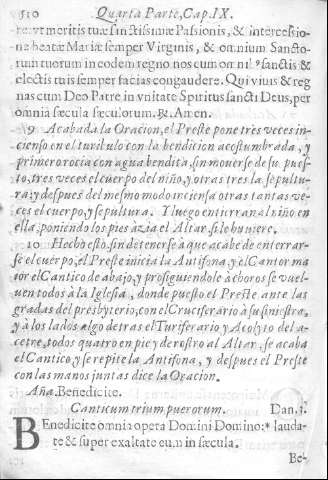 510 Quarta Parte, Cap. IX.
re, vt meritis tuæ sanctissimæ Passionis, & intercessio-
ne beatæ Mariæ semper Virginis, & omnium Sancto-
rum tuorum in eodem regno nos cum omnib⁹ sanctis &
electis tuis semper facias congaudere. Qui viuis & reg
nas cum Deo Patre in vnitate Spiritus sancti Deus, per
omnia sæcula sæculorum. ℟. Amen.
9 Acabada la Oracion, el Preste pone tres veces in-
cienso en el turibulo con la bendicion acostumbrada, y
primero rocia con agua bendita, sin mouerse de su pues-
to, tres veces el cuerpo del niño, y otras tres la sepultu-
ra: y despues del mesmo modo trciensa otras tantas ve-
ces el cuerpo, y sepultura. Y luego entierran al niño en
ella, poniendo los pies àzia el Altar, si le huuiere.
10 Hecho esto, sin detenerse à que acabe de enterrar-
se el cuerpo, el Preste inicia la Antifona, y el Cantor ma
yor el Cantico de abajo, y prosiguiendole à choros se vuel-
uen todos à la Iglesia, donde puesto el Preste ante las
gradas del presbyterio, con el Cruciferario à su siniestra,
y à los lados algo detras el Turiferario y Acolyto del a-
cetre, todos quatro en pie y de rostro al Altar, se acaba
el Cantico, y se repite la Antifona, y despues el Preste
con las manos juntas dice la Oracion.
Aña. Benedicite.
Canticum trium puerorum. Dan. 3.
BEnedicite omnia opera Domini Domino: * lauda-
te & superexaltate eum in sæcula.
Be-